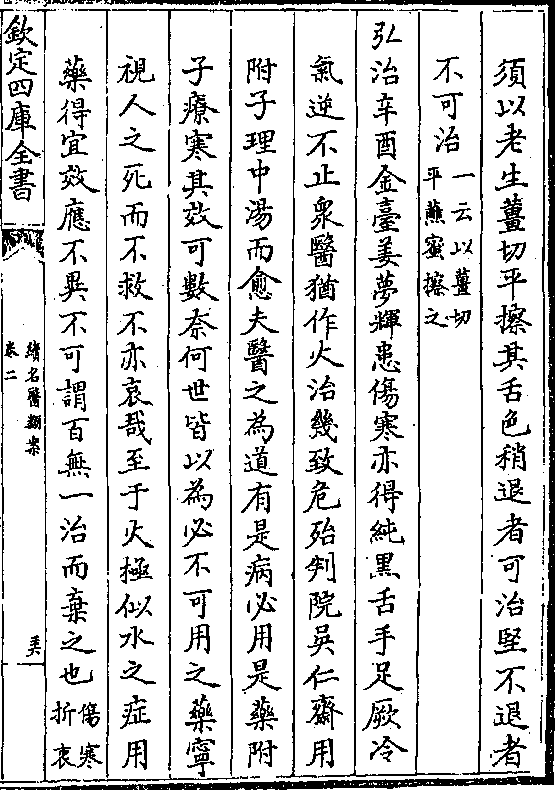 須以老生薑切平擦其舌色稍退者可治堅不退者
不可治一云以薑切
平蘸蜜擦之
弘治辛酉金臺姜夢輝患傷寒亦得純黑舌手足厥冷
氣逆不止衆醫猶作火治幾致危殆判院吳仁齋用
附子理中湯而愈夫醫之為道有是病必用是藥附
子療寒其效可數奈何世皆以為必不可用之藥寧
視人之死而不救不亦哀哉至于火極似水之症用
藥得宜效應不異不可謂百無一治而棄之也傷寒
折衷
欽定四庫全書
續名醫類案
卷二